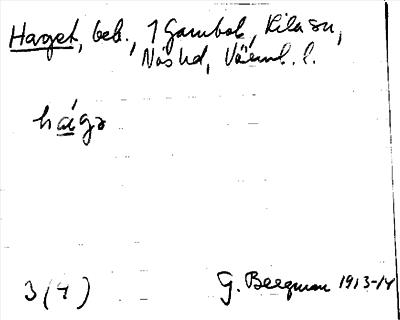 Haget, beb., 1 Gambol, Kila sn,
Näs hd, Värml. l.
hágə
3 (4) G. Bergman 1913-14